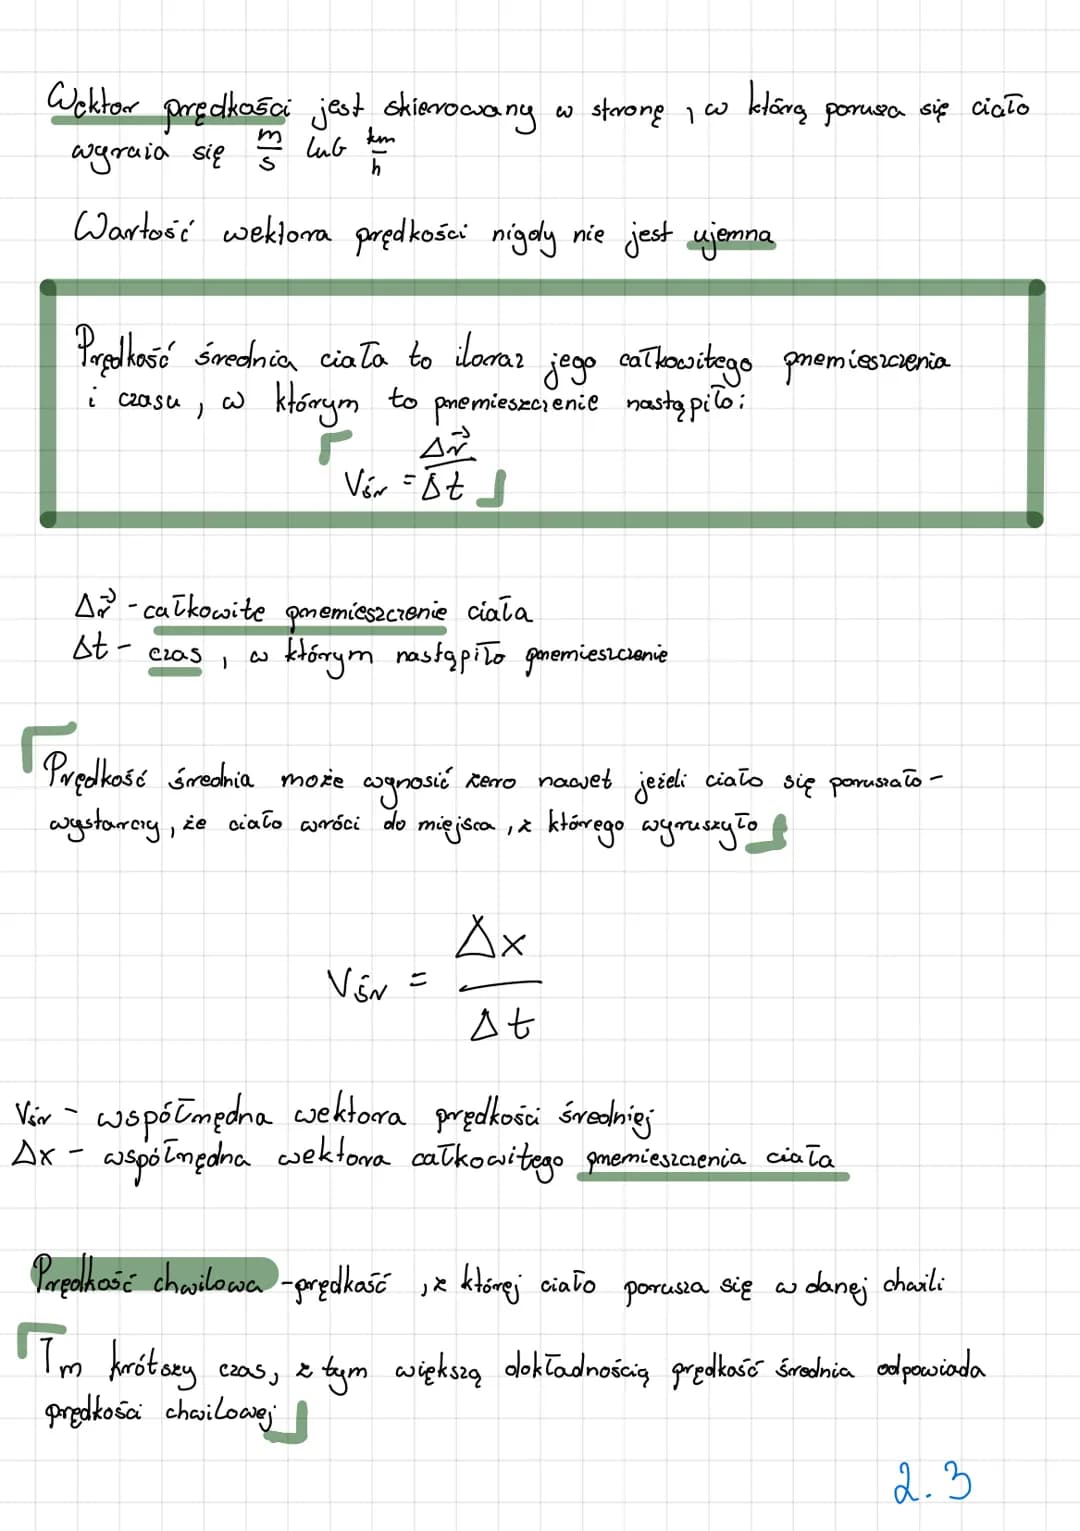 Wektor prędkości jest skierowany w stronę, w którą porusza się ciało
wyraża się m/s lub km/h
Wartość wektora prędkości nigdy nie jest ujemna
Prędkość średnia ciała to iloraz jego całkowitego przemieszczenia
i czasu, w którym to przemieszczenie nastąpiło:
Vśr = Δr⃗/Δt
Δr⃗ - całkowite przemieszczenie ciała
Δt - czas, w którym nastąpiło przemieszczenie
Prędkość średnia może wynosić zero nawet jeżeli ciało się poruszało -
wystarczy, że ciało wróci do miejsca, z którego wyruszyło
Vśr = Δx/Δt
Vśr - współrzędna wektora prędkości średniej
Δx - współrzędna wektora całkowitego przemieszczenia ciała
Prędkość chwilowa - prędkość, z której ciało porusza się w danej chwili
Im krótszy czas, z tym większą dokładnością prędkość średnia odpowiada
prędkości chwilowej
2.3